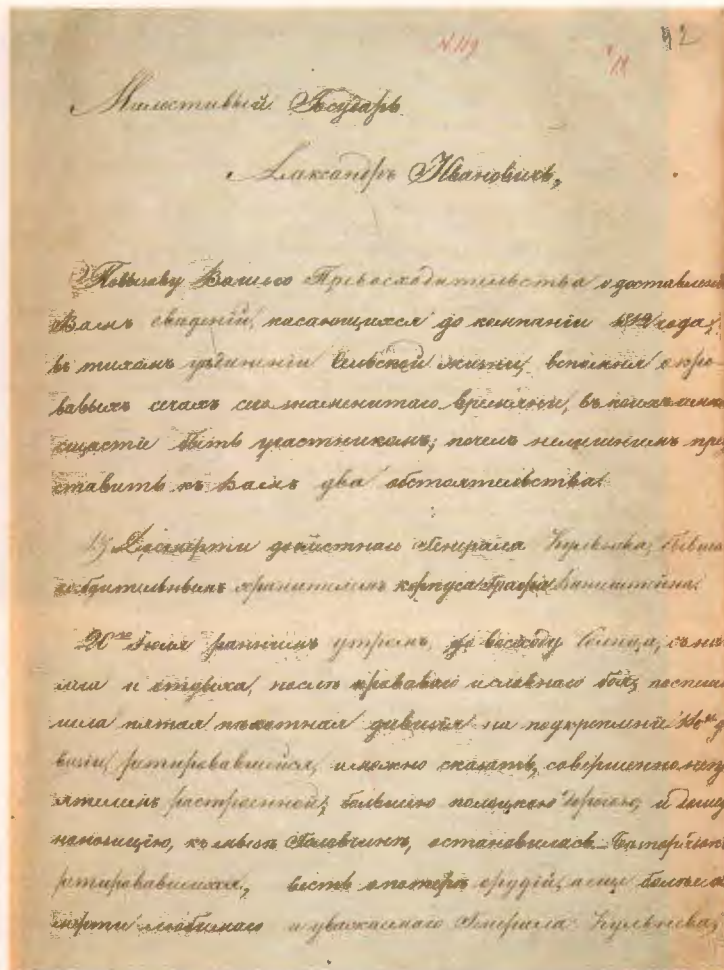 № 119 92
Милостивый Государь
Александръ Ивановичъ,
По вызову Вашего Превосходительства о доставлении
Вамъ сведений, касающихся до компании 1812 года,
въ тихомъ уединении Сельской жизни, вспомнил о кро-
вавыхъ сечахъ знаменитаго времяни, въ коихъ
щастие быть участникомъ; почелъ не лишнимъ пред
ставить къ Вамъ два обстоятельства:
1.) О смерти Генерала Кульнева,
хранителемъ корпуса Графа Витгенштейна.
20го Июля раннимъ утромъ, до восходу Солнца,
и отдыха, послѣ кроваваго и славнаго боя, поспе-
шила пятая пѣхотная дивизия на подкрепление
ретировавшейся, и можно сказать, совершенно
ятелемъ растроенной, большею полоцкою дорогою, и
къ мызѣ Головчинѣ, остановилась.
ретировавшихся, весть о потерѣ орудий, а еще болѣе о
смерти любимаго и уважаемаго Генерала Кульнева,